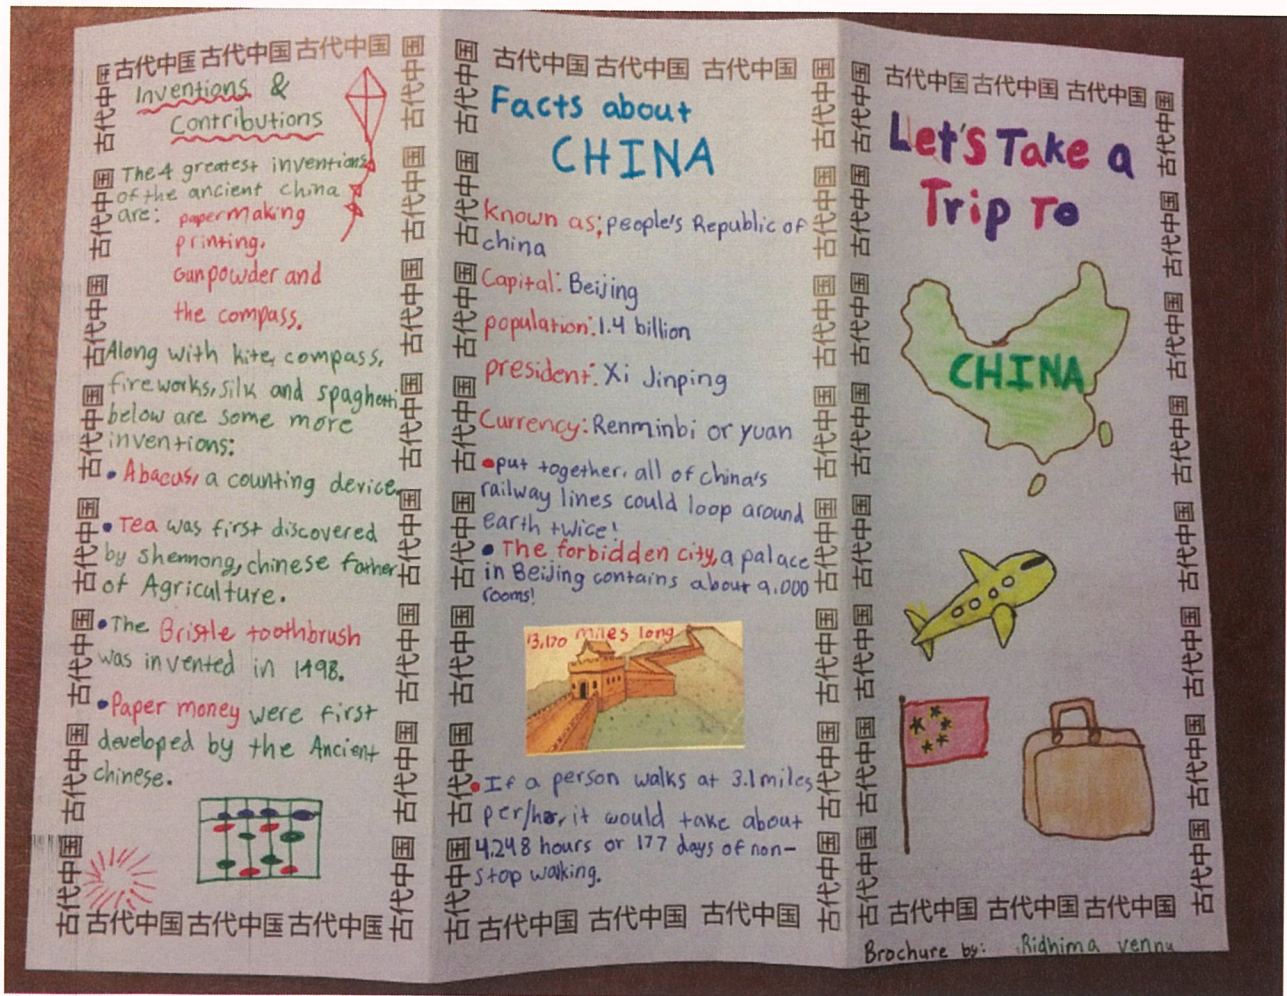 古代中国 古代中国 古代中国
Inventions &
Contributions
The 4 greatest inventions
of the ancient china
are: papermaking
printing,
Gunpowder and
the compass.
Along with kite, compass,
fireworks, silk and spaghetti
below are some more
inventions:
• Abacus, a counting device.
• Tea was first discovered
by shennong, chinese father
of Agriculture.
• The Bristle toothbrush
was invented in 1498.
• Paper money were first
developed by the Ancient
chinese.
古代中国 古代中国 古代中国
古代中国 古代中国 古代中国 古代中国 古代中国 古代中国 古代中国 古代中国
古代中国 古代中国 古代中国 古代中国 古代中国 古代中国 古代中国 古代中国
古代中国 古代中国 古代中国
Facts about
CHINA
Known as; people's Republic of
china
Capital: Beijing
population: 1.4 billion
president: Xi Jinping
Currency: Renminbi or yuan
• put together, all of china's
railway lines could loop around
earth twice!
• The forbidden city, a palace
in Beijing contains about 9,000
rooms!
13,170 miles long
• If a person walks at 3.1 miles
per/hr, it would take about
4,248 hours or 177 days of non-
stop walking.
古代中国 古代中国 古代中国
古代中国 古代中国 古代中国 古代中国 古代中国 古代中国 古代中国 古代中国
古代中国 古代中国 古代中国 古代中国 古代中国 古代中国 古代中国 古代中国
古代中国 古代中国 古代中国
Let's Take a
Trip To
CHINA
古代中国 古代中国 古代中国
古代中国 古代中国 古代中国 古代中国 古代中国 古代中国 古代中国 古代中国
古代中国 古代中国 古代中国 古代中国 古代中国 古代中国 古代中国 古代中国
Brochure by: Ridhima vennu